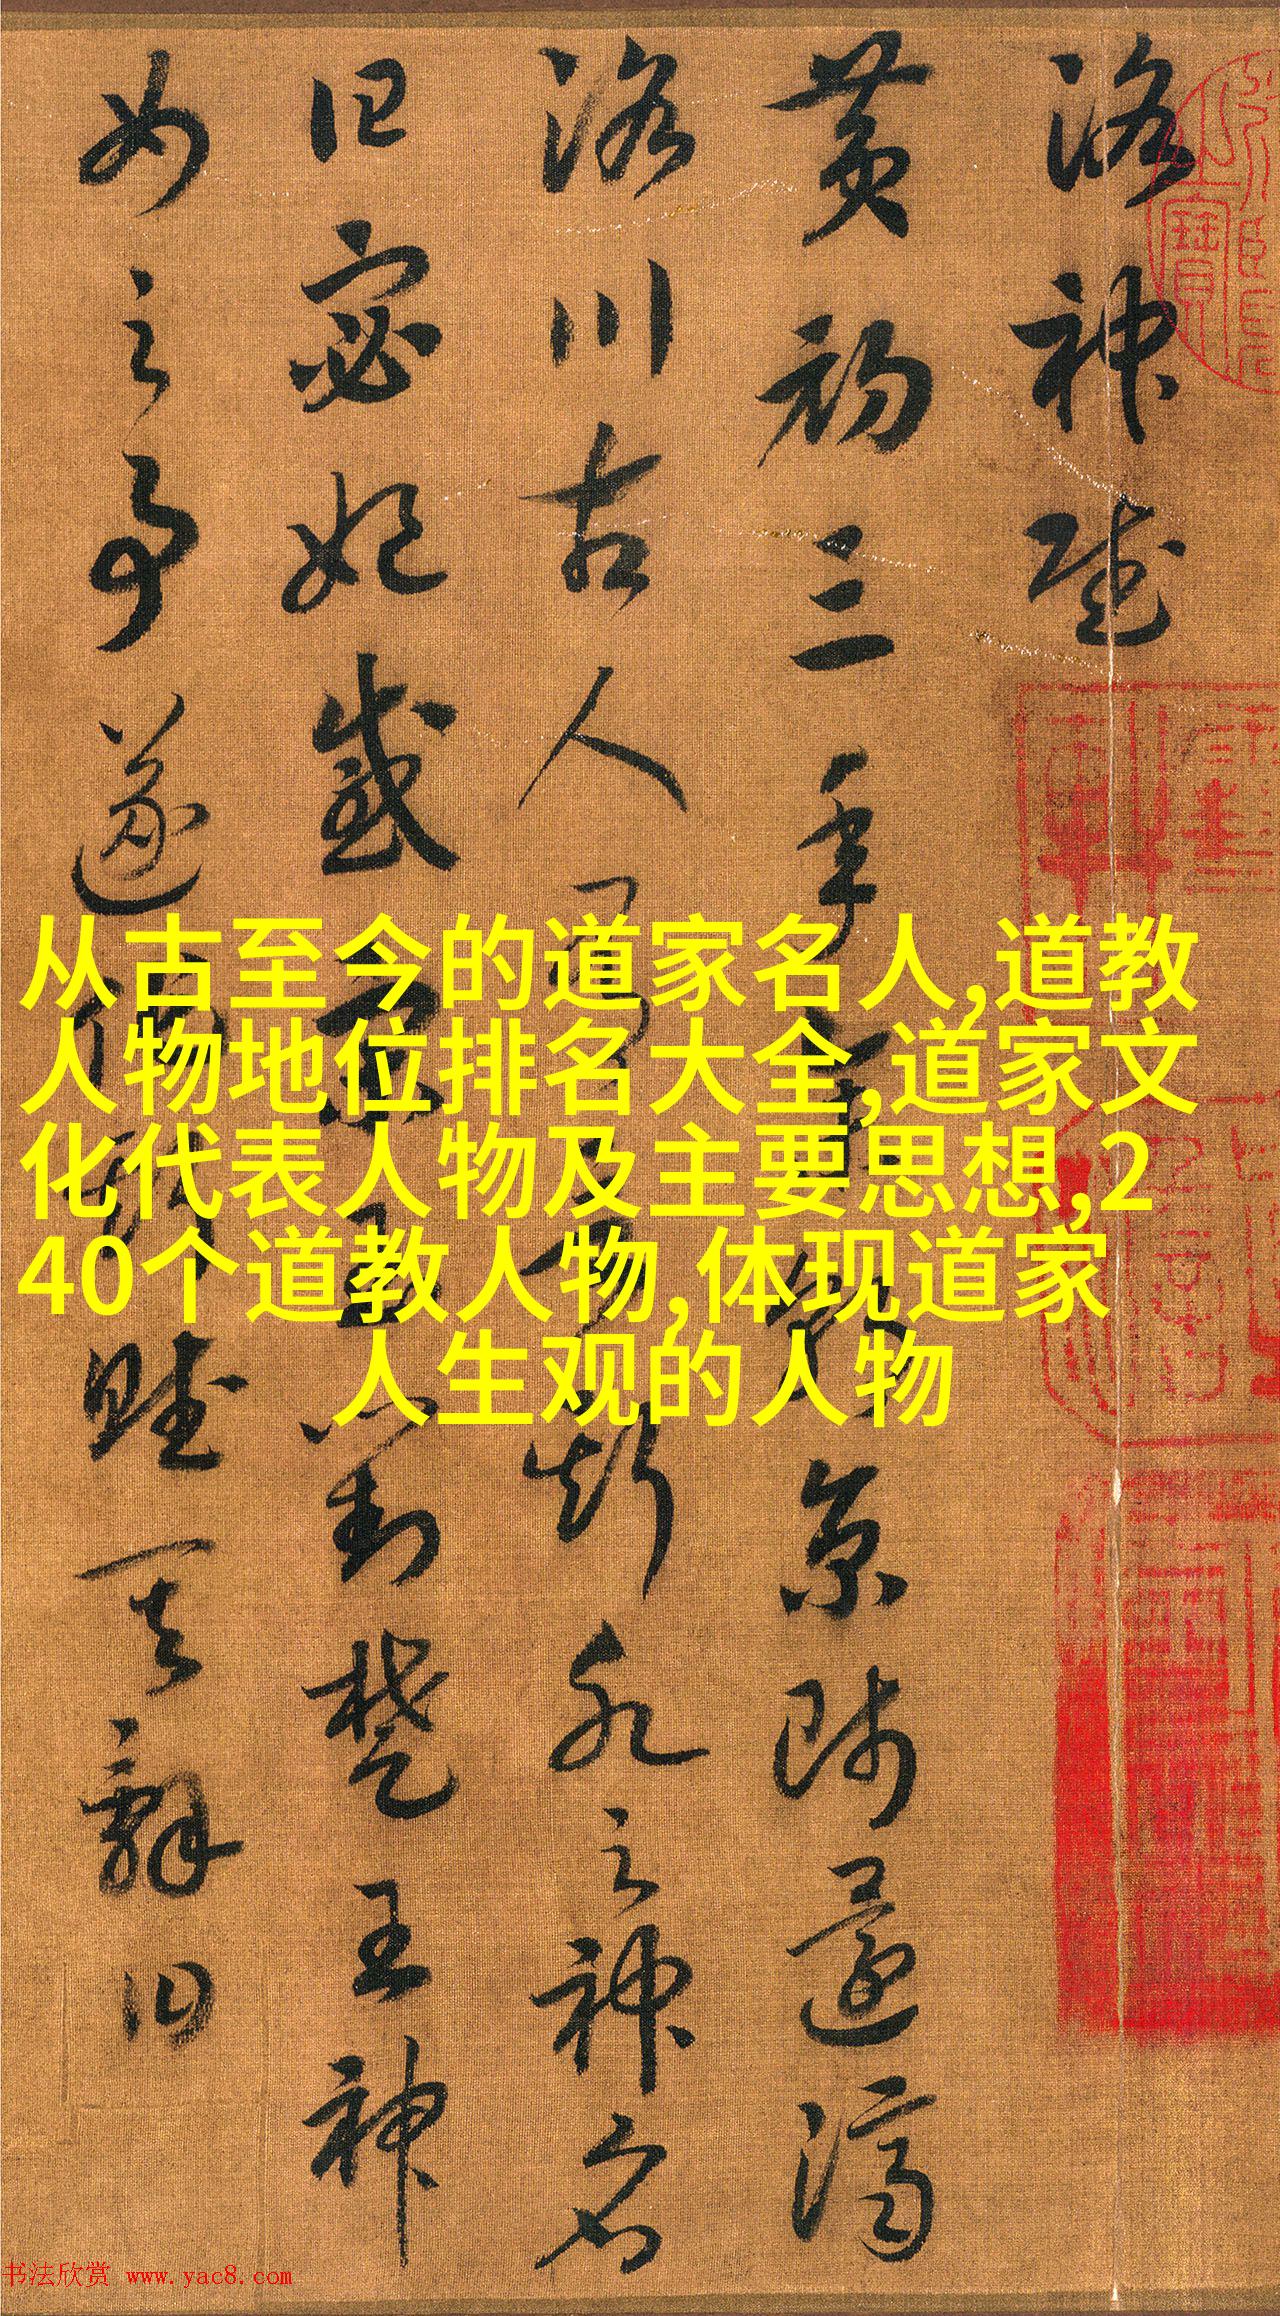 洛神賦
黄初三年余朝京師還濟
洛川古人有言斯水之神名
曰宓妃感宋玉對楚王神
女之事遂作斯賦其辭曰
从古至今的道家名人,道教
人物地位排名大全,道家文
化代表人物及主要思想,2
40个道教人物,体现道家
人生观的人物
书法欣赏 www.yac8.com